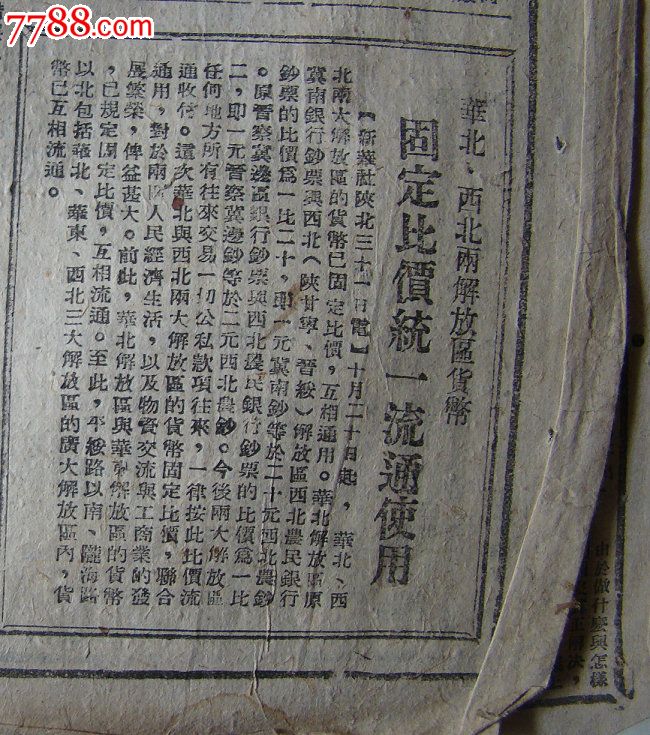 7788.com
華北、西北兩解放區貨幣
固定比價統一流通使用
【新華社陝北三十一日電】十月二十日起，華北、西
北兩大解放區的貨幣已固定比價，互相通用。華北解放區原
冀南銀行鈔票與西北（陝甘寧、晉綏）解放區西北農民銀行
鈔票的比價爲一比二十，即一元冀南鈔等於二十元西北農鈔
。原晉察冀邊區銀行鈔票與西北農民銀行鈔票的比價爲一比
二，即一元晉察冀邊鈔等於二元西北農鈔。今後兩大解放區
任何地方所有往來交易一切公私款項往來，一律按此比價流
通收付。這次華北與西北兩大解放區的貨幣固定比價，聯合
通用，對於兩區人民經濟生活，以及物資交流與工商業的發
展繁榮，俾益甚大。前此，華北解放區與華東解放區的貨幣
，已規定固定比價，互相流通。至此，平綏路以南、隴海路
以北包括華北、華東、西北三大解放區的廣大解放區內，貨
幣已互相流通。
由於做什麼與怎樣